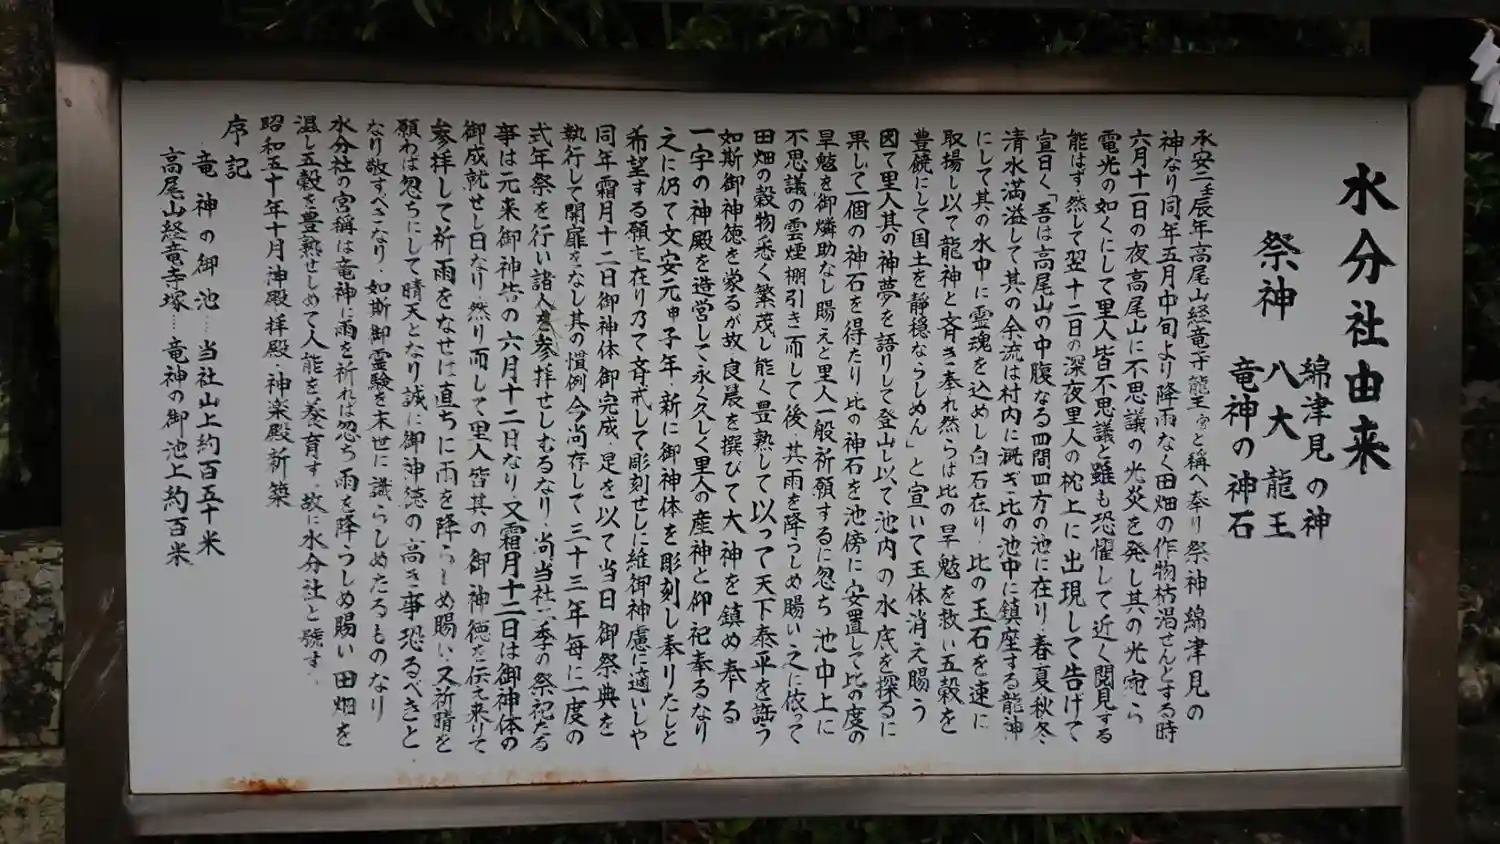 水分社由来
祭神
綿津見の神
八大龍王
竜神の神石
永安二壬辰年高尾山経竜寺龍王宮と稱へ奉り祭神綿津見の
神なり同年五月中旬より降雨なく田畑の作物枯渇せんとする時
六月十一日の夜高尾山に不思議の光炎を発し其の光宛ら
電光の如くにして里人皆不思議と雖も恐懼して近く閲見する
能はず然して翌十二日の深夜里人の枕上に出現して告げて
宣曰く「吾は高尾山の中腹なる四間四方の池に在り春夏秋冬
清水満溢して其の余流は村内に漑ぎ比の池中に鎮座する龍神
にして其の水中に霊魂を込めし白石在り比の玉石を速に
取揚し以て龍神と斉き奉れ然らは比の旱魃を救い五穀を
豊饒にして国土を静穏ならしめん」と宣いて玉体消え賜う
因て里人其の神夢を語りして登山し以て池内の水底を探るに
果して一個の神石を得たり比の神石を池傍に安置して比の度の
旱魃を御憐助なし賜えと里人一般祈願するに忽ち池中上に
不思議の雲煙棚引き二而して後其雨を降らしめ賜い之に依って
田畑の穀物悉く繁茂し能く豊熟して以って天下泰平を謳う
如斯御神徳を蒙るが故良晨を撰びて大神を鎮め奉る
一宇の神殿を造営して永く久しく里人の産神と仰祀奉るなり
之に仍て文安元甲子年新に御神体を彫刻し奉りたしと
希望する願主在り乃て斉戒して彫刻せしに維御神慮に適いしや
同年霜月十二日御神体御完成是を以て当日御祭典を
執行して開扉をなし其の慣例今尚存して三十三年毎に一度の
式年祭を行い諸人を参拝せしむるなり尚当社二季の祭祀たる
事は元来御神告の六月十二日なり又霜月十二日は御神体の
御成就せし日なり然り而して里人皆其の御神徳を伝え来けて
参拝して祈雨をなせは直ちに雨を降らしめ賜い又祈晴を
願わは忽ちにして晴天となり誠に御神徳の高き事恐るべきと
なり敬すべきなり.如斯御霊験を末世に識らしめたるものなり
水分社の宮稱は竜神に雨を祈れは忽ち雨を降らしめ賜い田畑を
温し五穀を豊熟せしめて人能を養育す.故に水分社と號す.
昭和五十年十月神殿.拝殿.神楽殿新築
序記
竜神の御池…当社山上約百五十米
高尾山経竜寺塚…竜神の御池上約百米